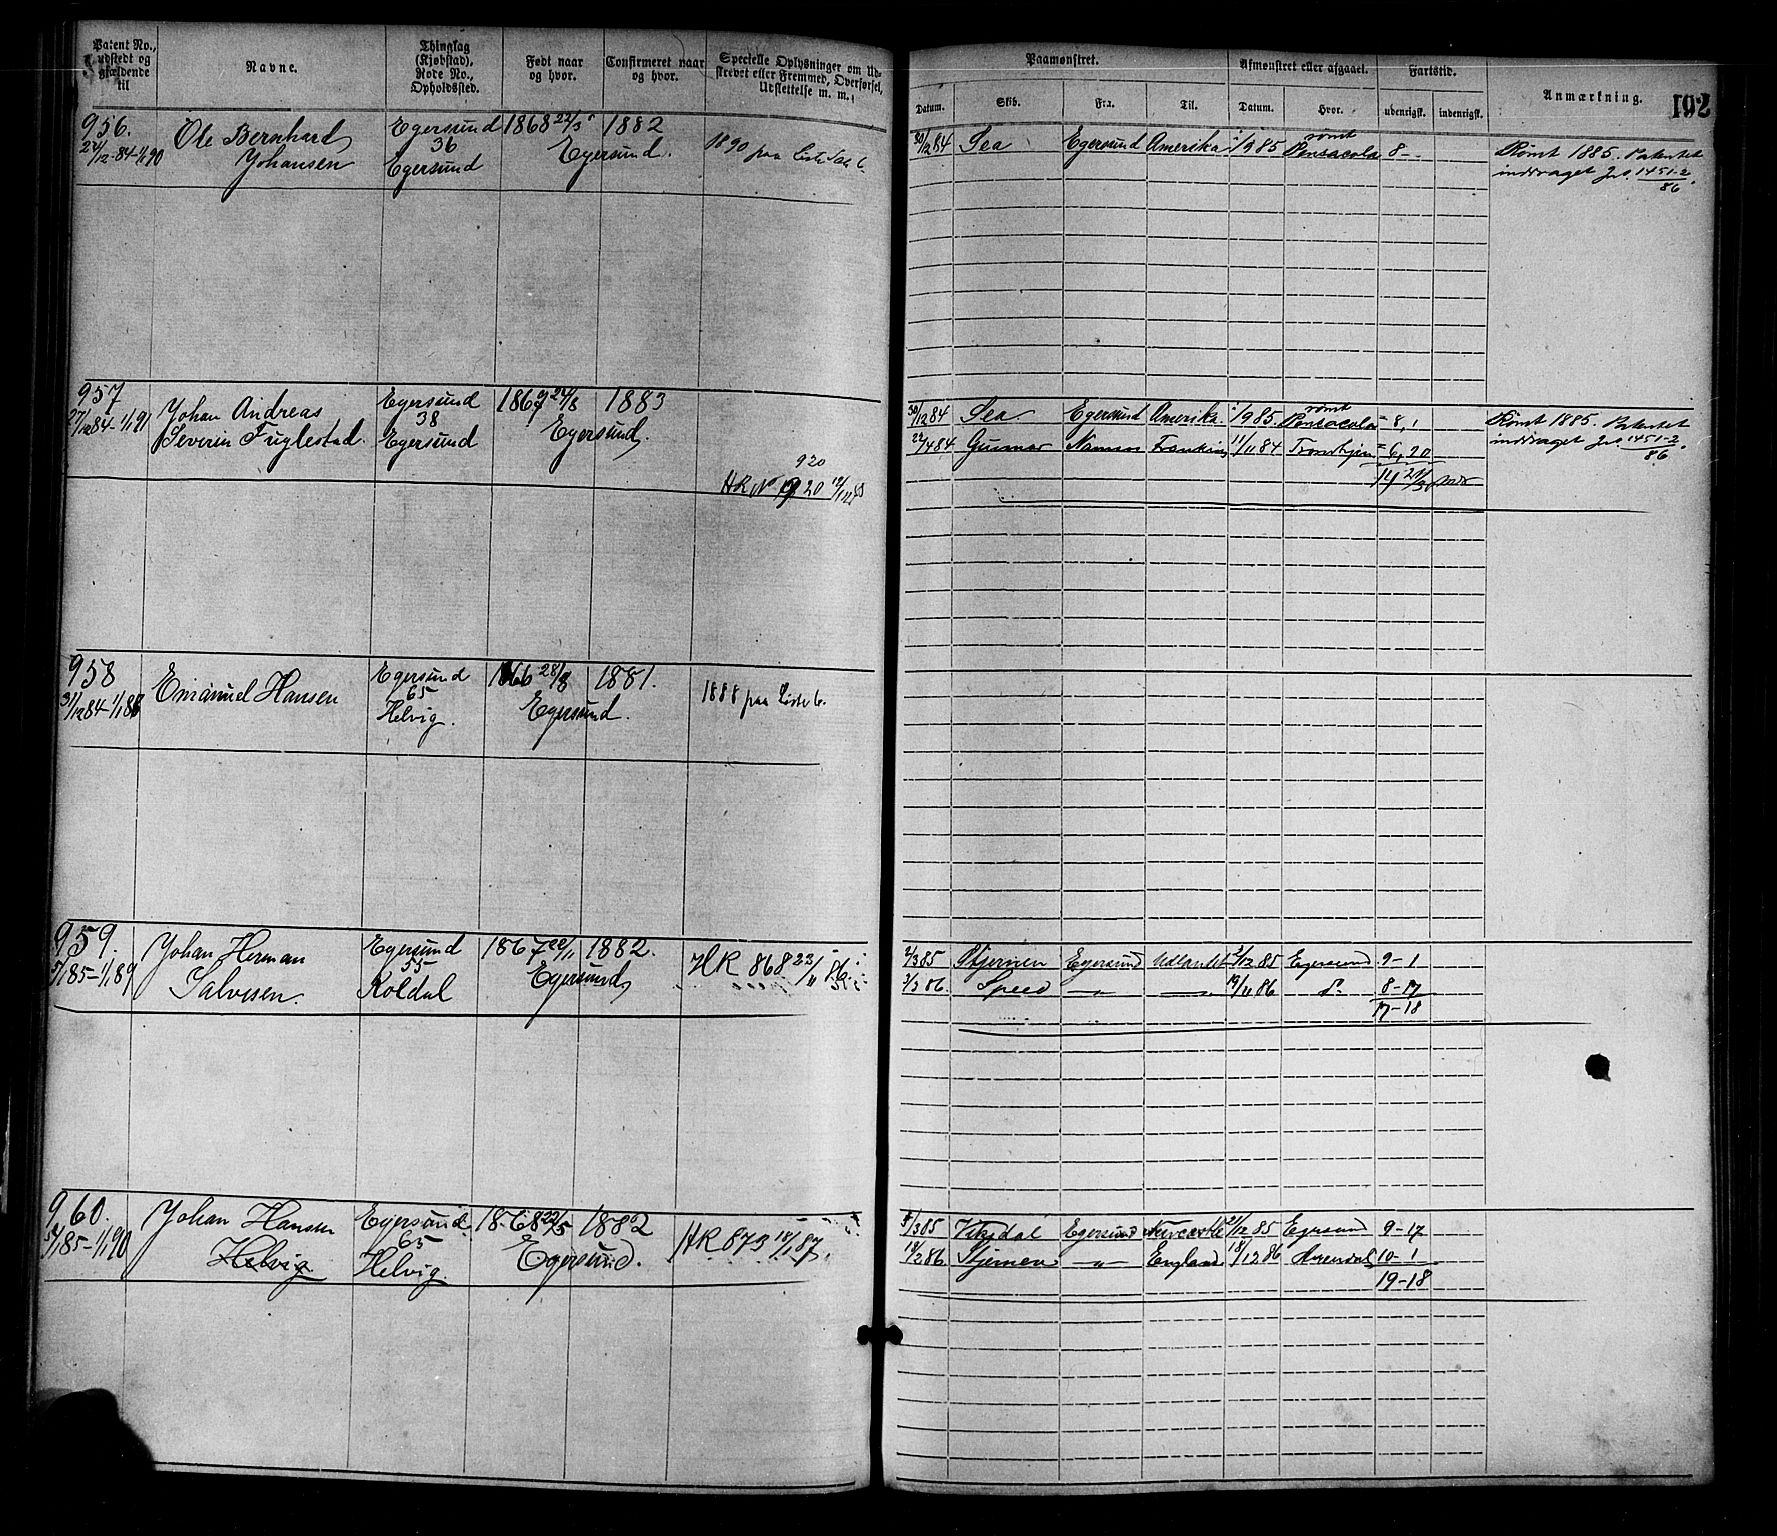 Patent No., udstedt og gjældende til
Navne.
Thinglag (Kjøbstad), Rode No., Opholdssted.
Født naar og hvor.
Confirmeret naar og hvor.
Specielle Oplysninger om Ud-
skrevet eller Fremmed, Overførsel,
Udslettelse m. m.
Paamønstret.
Afmønstret eller afgaaet.
Fartstid.
Anmærkning.
192
Datum.
Skib.
Fra.
Til.
Datum.
Hvor.
udenrigsk.
indenrigsk.
956.
27/12-84-1/1 90
Ole Bernhard
Johansen
Egersund
36
Egersund
1868 22/3
1882
Egersund.
1890 paa
30/12 84 Sea Egersund Amerika 1985 rømt Pensacola 8 -
Rømt 1885. Patentet
inddraget Jrs. 1451-2/86.
957
27/12 84-1/1 91
Johan Andreas
Severin Fuglestad.
Egersund
38
Egersund
1869 24/8
1883
Egersund.
920
HR No 920
30/12 84 Sea Egersund Amerika. 1985. rømt Pensacola 8, 1
22/4 84 Gunnar Namsos 11/11 84 Trondhjem 6, 20
Rømt 1885. Patentet
inddraget Jrs. 1451-2/86.
958
31/12 84-1/1 88
Emanuel Hansen
Egersund
65
Helvig.
1866 28/8
1881.
Egersund.
1888 paa Liste 6.
959.
5/1 85-1/1 89
Johan Herman
Salvesen.
Egersund
55
Koldal
1867
1882.
Egersund
HR 868 23/11 86
2/3 85 Stjernen Egersund Udlandet 2/12 85 Egersund 9-1
3/3 86. Speed -"- 19/11 86 8-17
17-18
960.
5/1 85-1/1 90
Johan Hansen
Helvig
Egersund
65
Helvig
1868 22/5
1882
Egersund.
HR 873 18/1 87.
5/3 85 Egersund Newcastle 21/12 85 Egersund 9-17
18/2 86 Stjernen -"- England 18/12 86 10-1
19-18